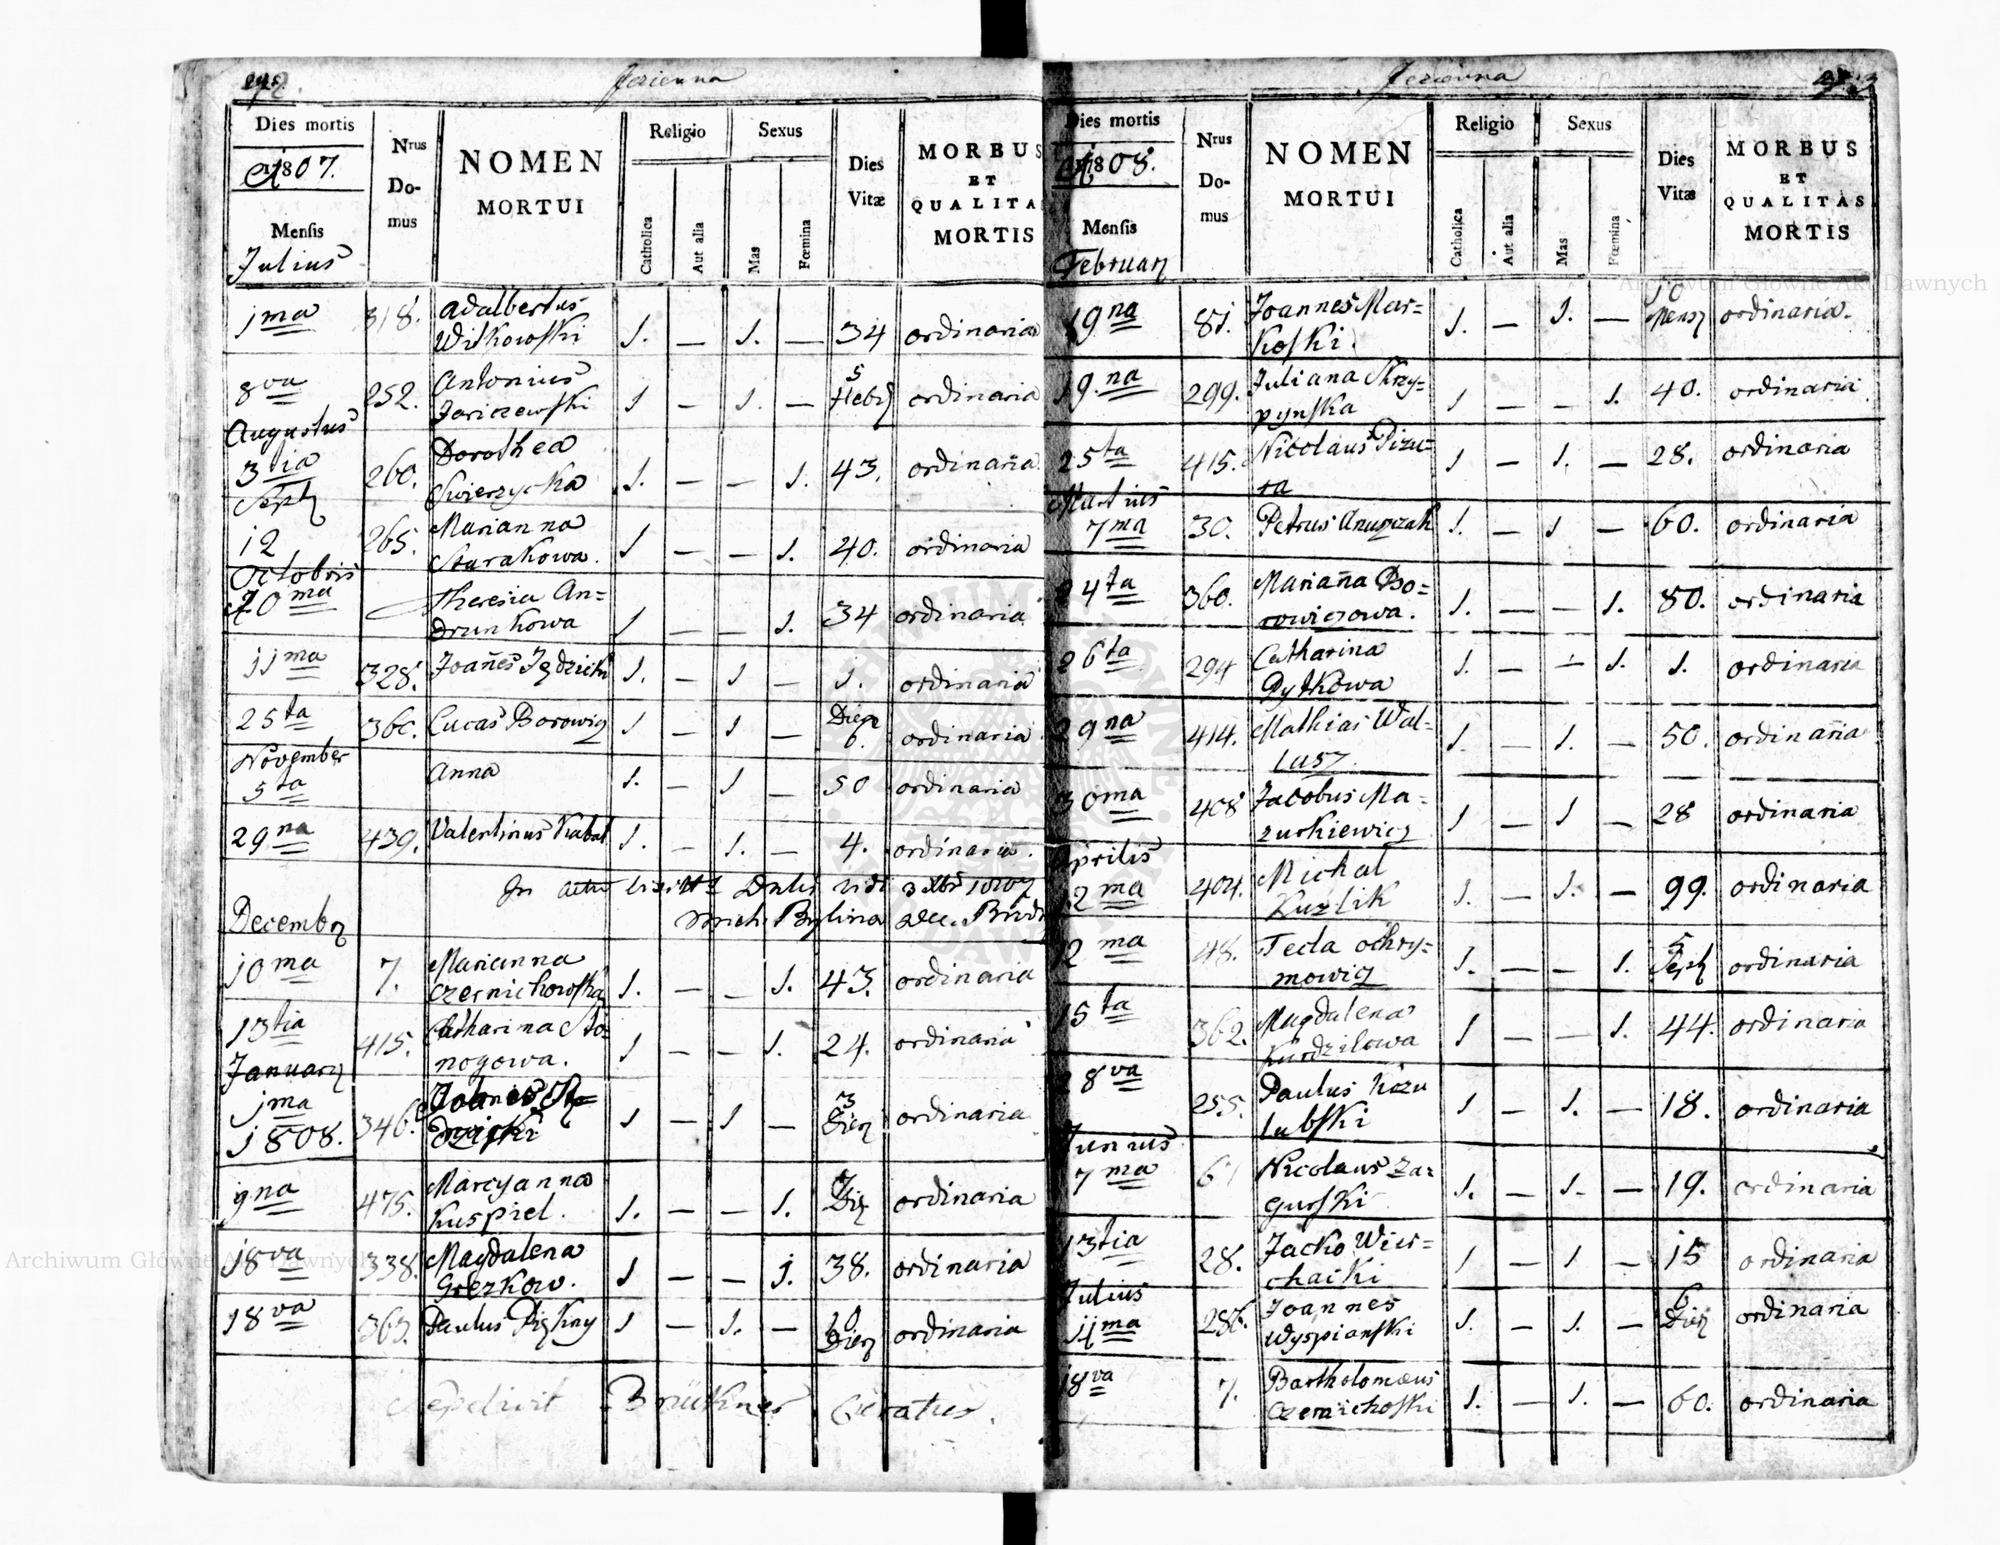 Jezierna
Dies mortis
1807.
Mensis
Julius
Nrus
Do-
mus
NOMEN
MORTUI
Religio
Catholica
Aut alia
Sexus
Mas
Fœmina
Dies
Vitæ
MORBUS
ET
QUALITA
MORTIS
1ma 318. Adalbertus
Witkowski 1. — 1. — 34 ordinaria
8va 252. Antonius
Jariczewski 1 — 1. — 5 Hebd ordinaria
Augustus
3tia 260. Dorothea
Swierzycka 1. — — 1. 43. ordinaria
Septz
12 265. Marianna
Sturakowa. 1 — — 1. 40. ordinaria
Octobris
10ma Theresia An=
drunkowa 1 — — 1. 34 ordinaria
11ma 328. Joañes 1. — 1 — 1. ordinaria
25ta 360. Lucas Borowicz 1 — 1 — Dierz 6. ordinaria
November
5ta Anna 1. — 1 — 50 ordinaria
29na 439. Valentinus Kabat 1. — 1. — 4. ordinaria.
In
Mich. Bylina Dec.
Decembr
10ma 7. Marianna
Czernichowska 1. — — 1. 43. ordinaria
13tia 415. Catharina Sto=
nogowa. 1 — — 1. 24. ordinaria
January
1ma
1808. 346. 1 — 1 — 3 Dierz ordinaria
9na 475. Marcyanna
Kuspiel. 1. — — 1. 7 Dierz ordinaria
18va 338. Magdalena
1 — — 1. 38. ordinaria
18va 363. Paulus Piękny 1 — 1. — 10 Dierz ordinaria
Sepelivit Brückner Curatus.
Jezierna
Dies mortis
1808.
Mensis
Februarz
Nrus
Do-
mus
NOMEN
MORTUI
Religio
Catholica
Aut alia
Sexus
Mas
Fœmina
Dies
Vitæ
MORBUS
ET
QUALITAS
MORTIS
19na 81. Joannes Mar=
koski. 1. — 1. — 10 Mensz ordinaria.
19.na 299. Juliana Skrzy=
pynska 1 — — 1. 40. ordinaria
25ta 415. Nicolaus Pizu=
ra 1 — 1. — 28. ordinaria
Martius
7ma 30. Petrus 1. — 1 — 60. ordinaria
24ta 360. Mariaña Bo=
rowiczowa. 1. — — 1. 80. ordinaria
26ta 294 Catharina
Pytkowa 1. — — 1. 1. ordinaria
29na 414. Mathias Wal=
lusz. 1. — 1. — 50. ordinaria
30ma 408 Jacobus Ma=
zurkiewicz 1 — 1 — 28 ordinaria
Aprilis
12ma 404. Michal
Kuzlik 1. — 1. — 99. ordinaria
12ma 48. Tecla ochry=
mowicz 1. — — 1. 5 Septz ordinaria
15ta 362. Magdalena
Kurdzilowa 1 — — 1. 44. ordinaria
28va 255. Paulus Kozu
lubski 1 — 1. — 18. ordinaria
Junius
7ma Nicolaus Za=
gurski 1. — 1. — 19. ordinaria
13tia 28. Jacko Wier=
chacki 1 — 1 — 15 ordinaria
Julius
11ma 286. Joannes
Wyspianski 1. — 1. — 6 Dierz ordinaria
18va 7. Bartholomæus
Czernichoski 1. — 1. — 60. ordinaria
Archiwum Główne Akt Dawnych
Archiwum Główne Akt Dawnych